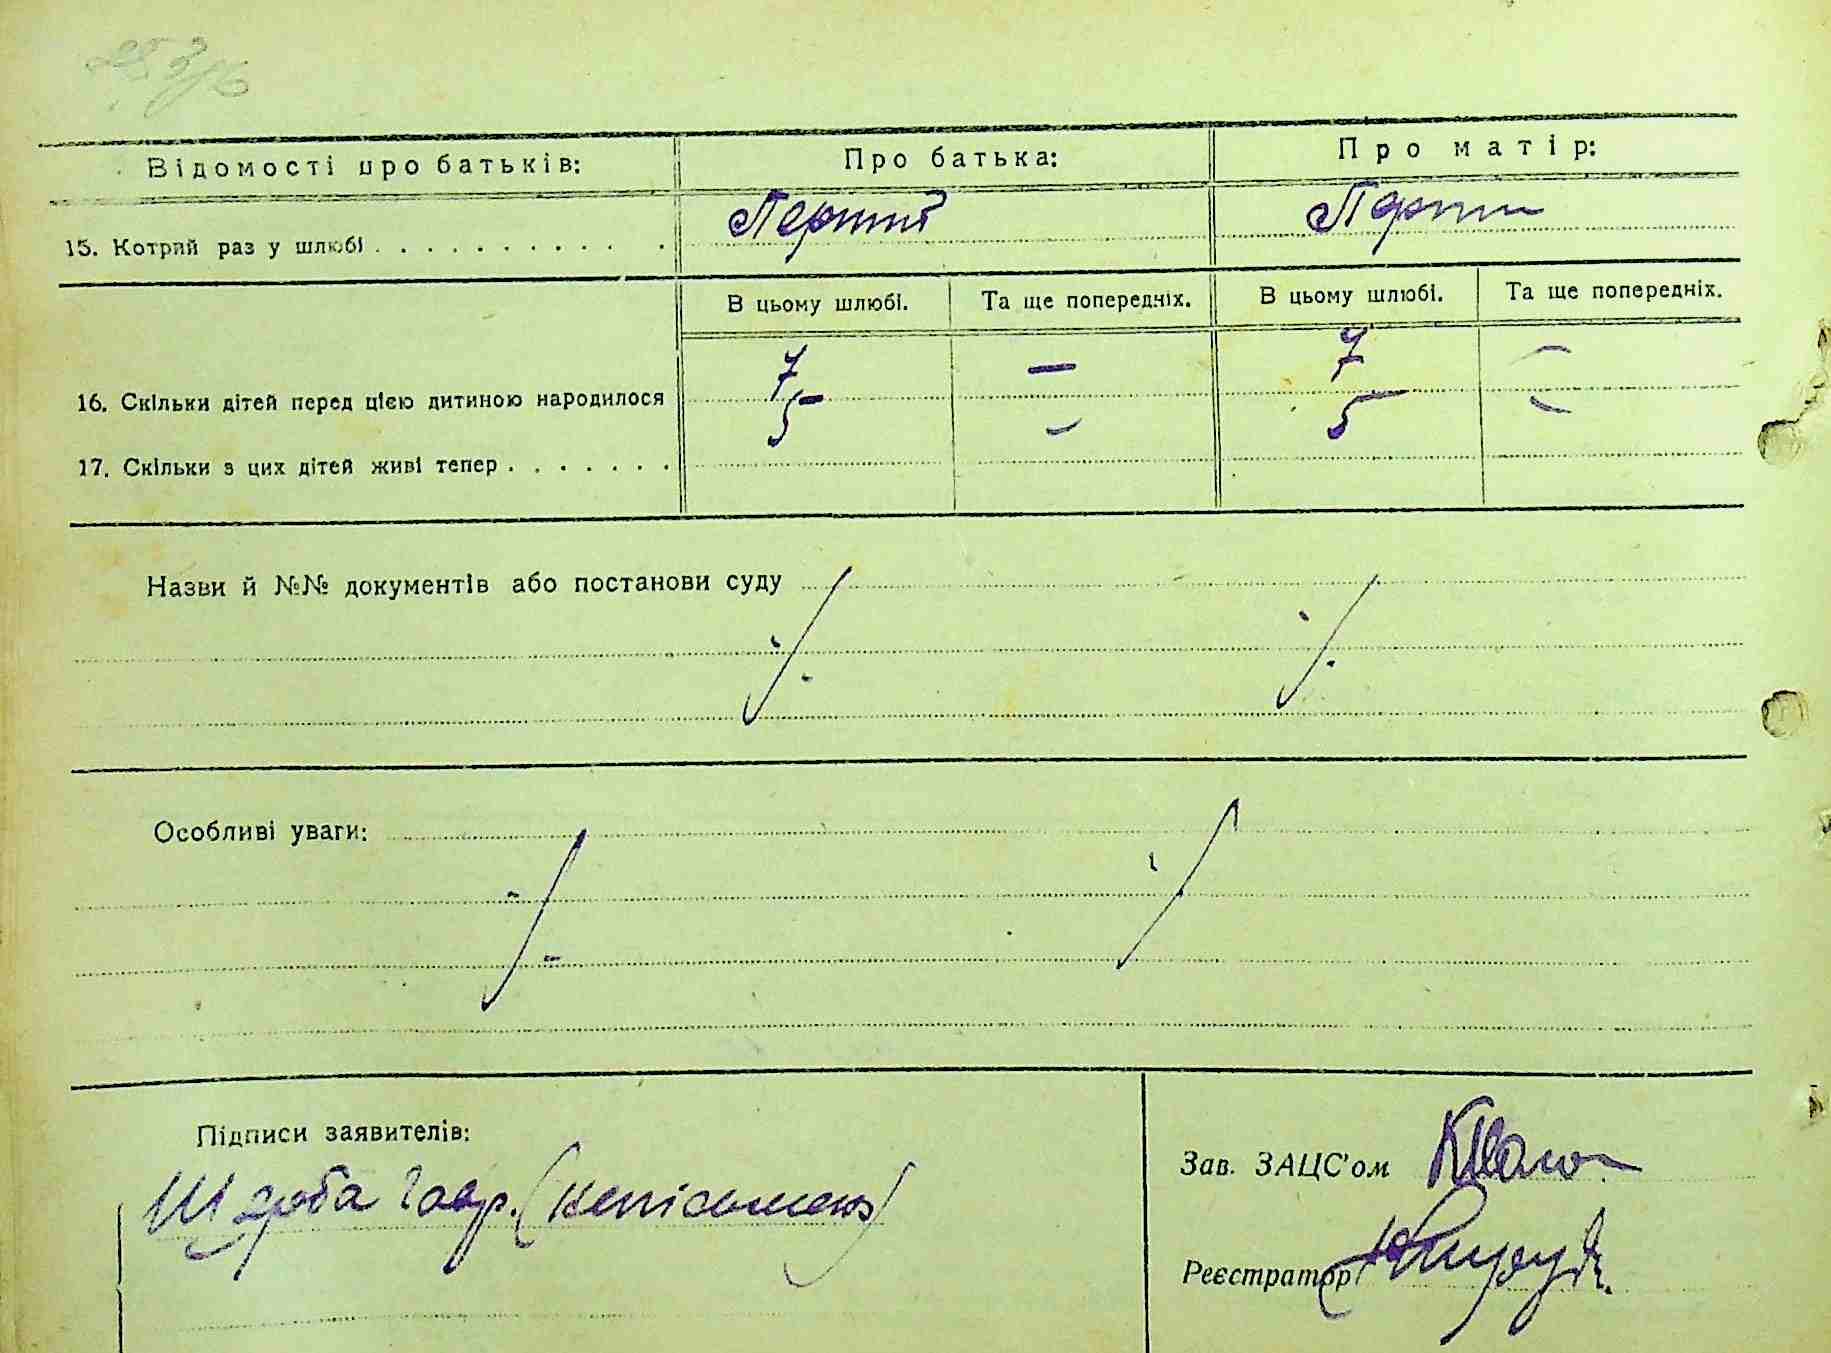 Відомості про батьків: Про батька: Про матір:
15. Котрий раз у шлюбі . . . . . . . . . . . Перший Перши
В цьому шлюбі. Та ще попередніх. В цьому шлюбі. Та ще попередніх.
16. Скільки дітей перед цією дитиною народилося 7 — 7 —
17. Скільки з цих дітей живі тепер . . . . . . . 5 — 5 —
Назви й №№ документів або постанови суду
Особливі уваги:
Підписи заявителів:
Щерба Гавр. (неписьмен)
Зав. ЗАЦС'ом
Реєстратор